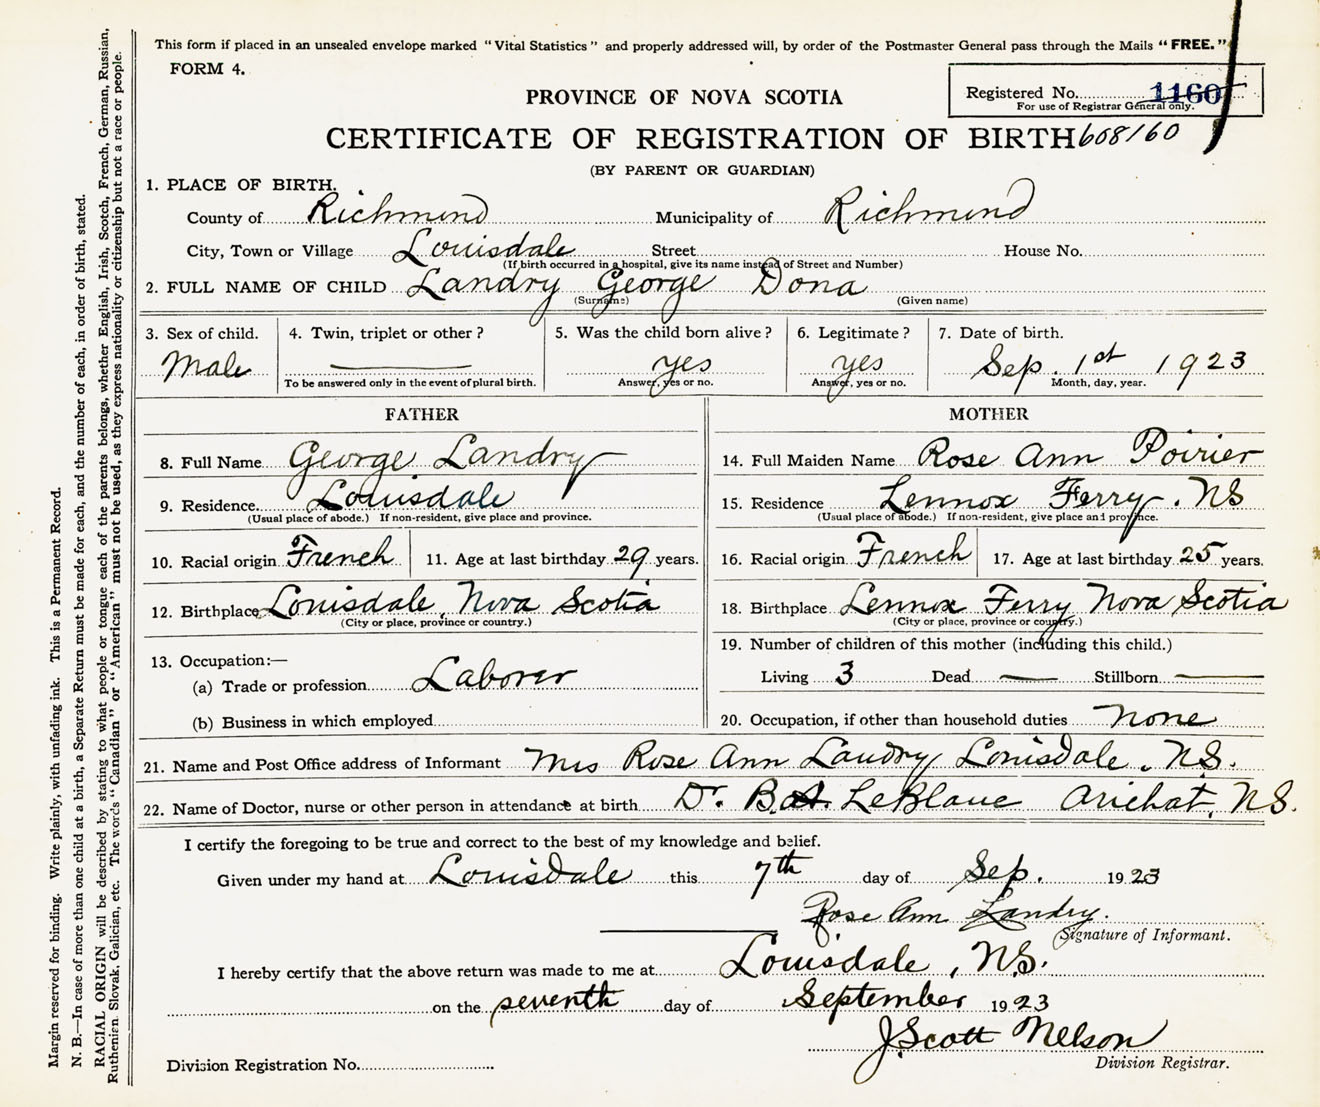 This form if placed in an unsealed envelope marked "Vital Statistics" and properly addressed will, by order of the Postmaster General pass through the Mails "FREE."
FORM 4.
Registered No. 1160
For use of Registrar General only.
PROVINCE OF NOVA SCOTIA
CERTIFICATE OF REGISTRATION OF BIRTH 608160
(BY PARENT OR GUARDIAN)
1. PLACE OF BIRTH.
County of Richmond Municipality of Richmond
City, Town or Village Louisdale Street House No.
(If birth occurred in a hospital, give its name instead of Street and Number)
2. FULL NAME OF CHILD Landry George Dona
(Surname) (Given name)
3. Sex of child. 4. Twin, triplet or other? 5. Was the child born alive? 6. Legitimate? 7. Date of birth.
Male yes yes Sep. 1st 1923
To be answered only in the event of plural birth. Answer, yes or no. Answer, yes or no. Month, day, year.
FATHER
8. Full Name George Landry
9. Residence. Louisdale
(Usual place of abode.) If non-resident, give place and province.
10. Racial origin French 11. Age at last birthday 29 years.
12. Birthplace Louisdale, Nova Scotia
(City or place, province or country.)
13. Occupation:—
(a) Trade or profession Laborer
(b) Business in which employed
MOTHER
14. Full Maiden Name Rose Ann Poirier
15. Residence Lennox Ferry. NS
(Usual place of abode.) If non-resident, give place and province.
16. Racial origin French 17. Age at last birthday 25 years.
18. Birthplace Lennox Ferry Nova Scotia
(City or place, province or country.)
19. Number of children of this mother (including this child.)
Living 3 Dead — Stillborn —
20. Occupation, if other than household duties None
21. Name and Post Office address of Informant Mrs Rose Ann Landry Louisdale, N.S.
22. Name of Doctor, nurse or other person in attendance at birth Dr. B.A. LeBlanc Arichat, N.S.
I certify the foregoing to be true and correct to the best of my knowledge and belief.
Given under my hand at Louisdale this 7th day of Sep. 1923
Rose Ann Landry.
Signature of Informant.
I hereby certify that the above return was made to me at Louisdale, N.S.
on the seventh day of September 1923
J. Scott Nelson
Division Registration No. Division Registrar.
Margin reserved for binding. Write plainly, with unfading ink. This is a Permanent Record.
N. B.—In case of more than one child at a birth, a Separate Return must be made for each, and the number of each, in order of birth, stated.
RACIAL ORIGIN will be described by stating to what people or tongue each of the parents belongs, whether English, Irish, Scotch, French, German, Russian,
Ruthenian, Slovak, Galician, etc. The words "Canadian" or "American" must not be used, as they express nationality or citizenship but not a race or people.